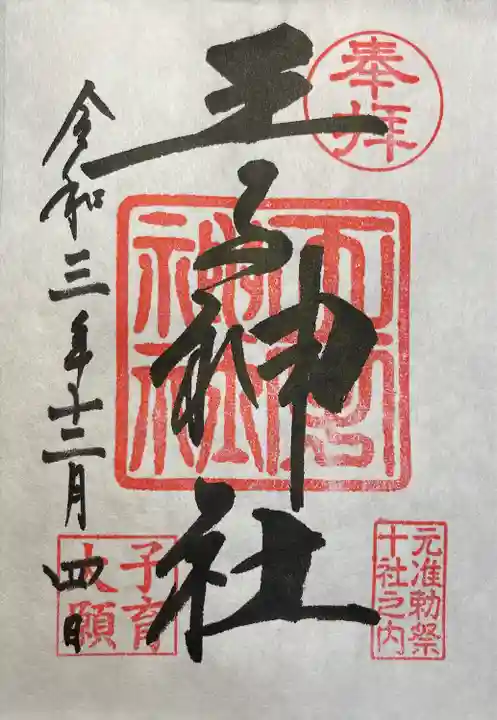 奉拝
元准勅祭
十社之内
王子神社
令和三年十二月四日
子育
大願